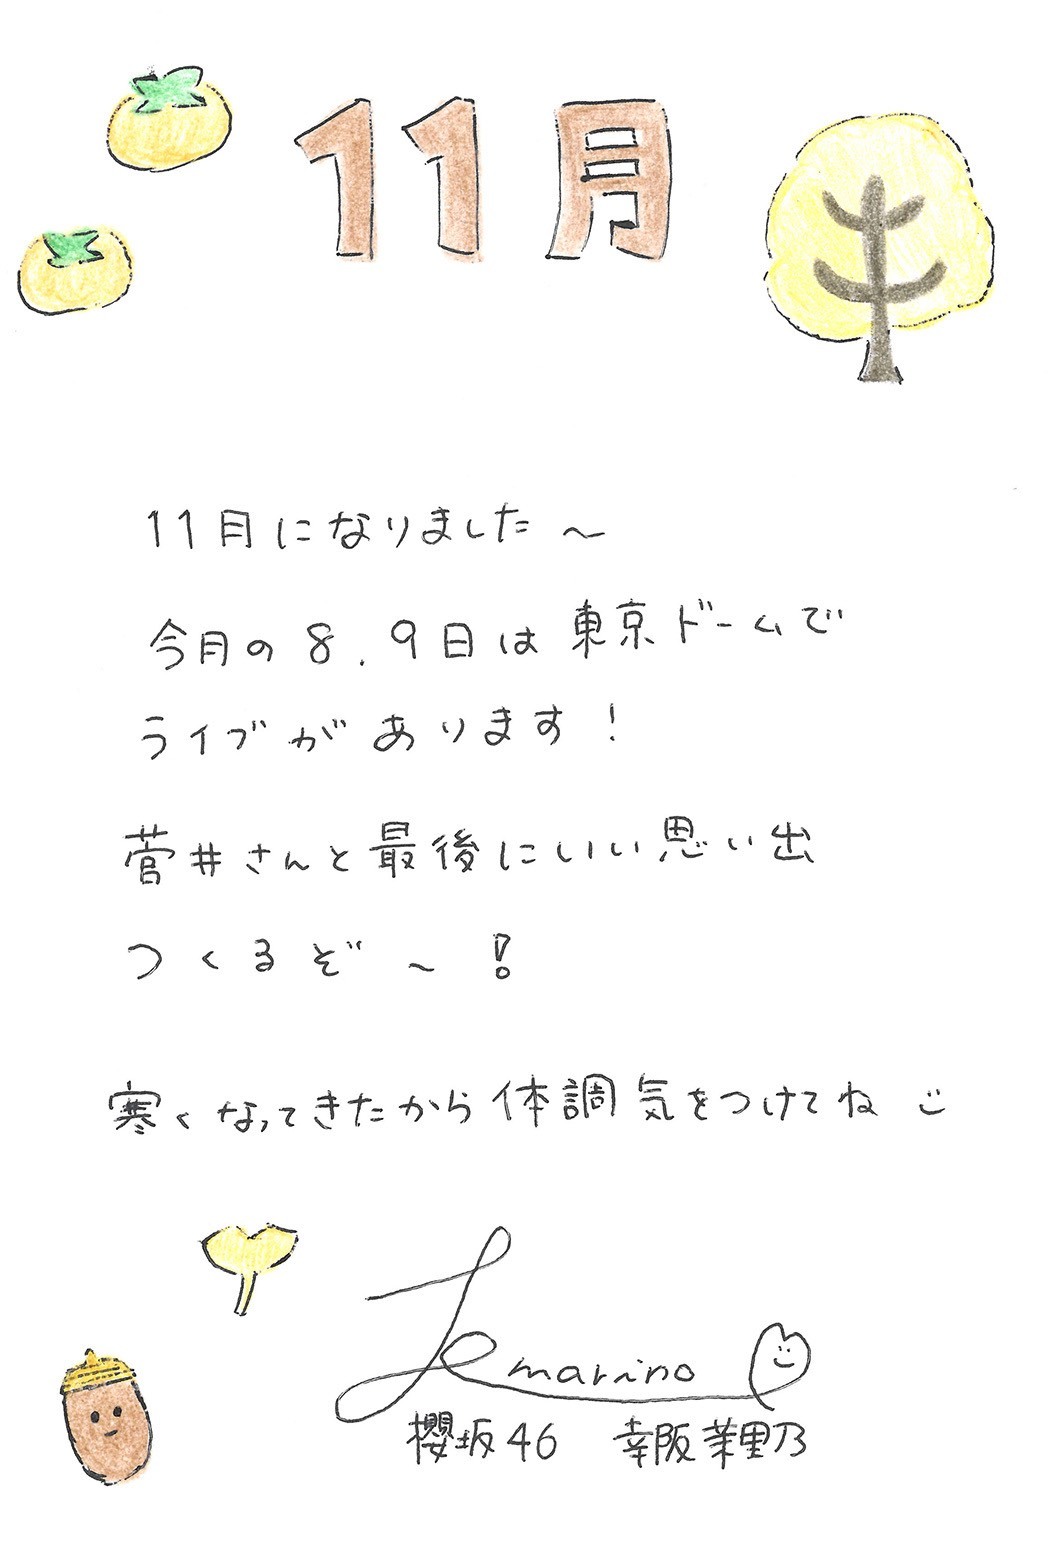 11月
11月になりました～
今月の8.9日は東京ドームで
ライブがあります!
菅井さんと最後にいい思い出
つくるぞ～!
寒くなってきたから体調気をつけてね
marino
櫻坂46 幸阪茉里乃